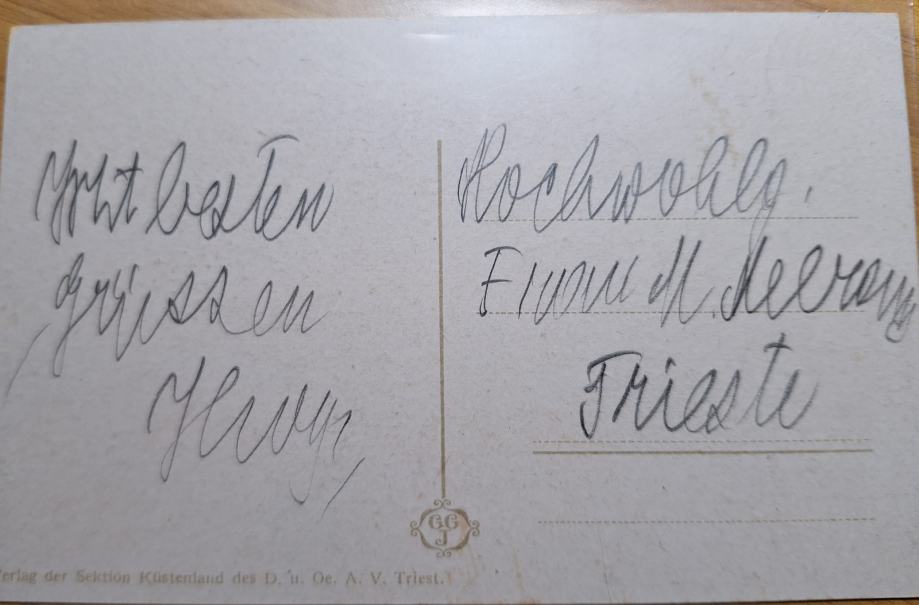 Mit besten
Grüssen
Hochwohlg.
Frau M.
Trieste
GG
J
Verlag der Sektion Küstenland des D. u. Oe. A. V. Triest.